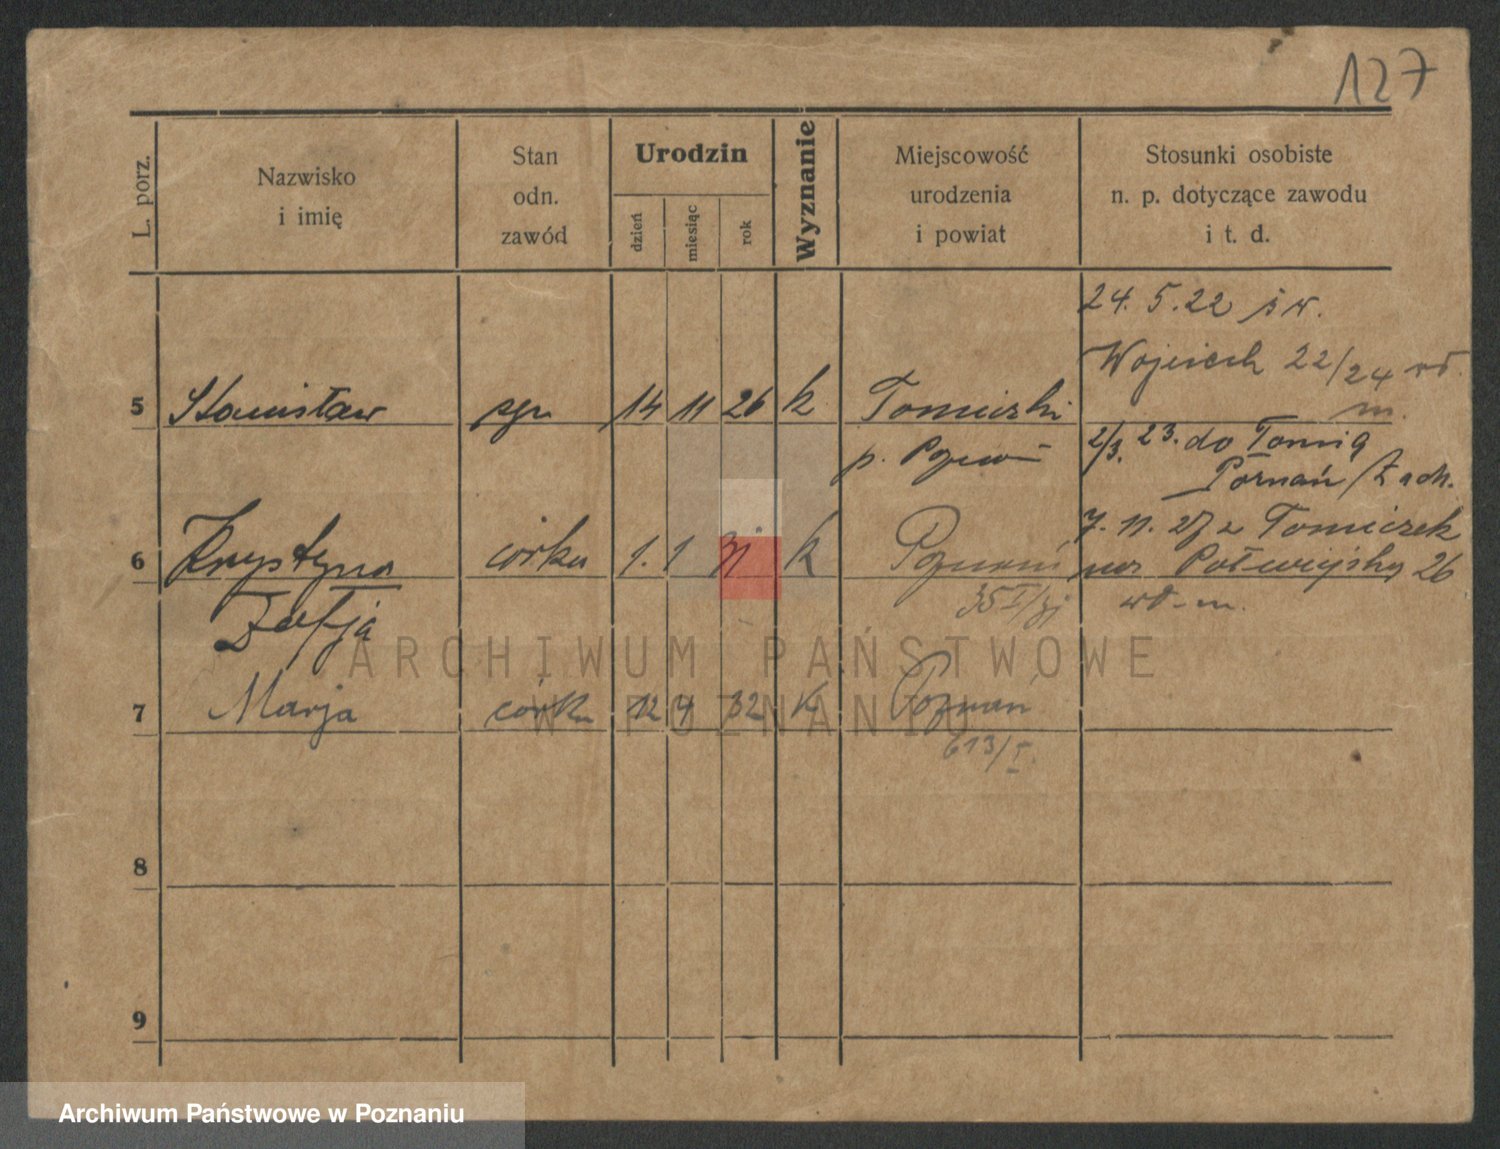 127
L. porz.
Nazwisko
i imię
Stan
odn.
zawód
Urodzin
dzień
miesiąc
rok
Wyznanie
Miejscowość
urodzenia
i powiat
Stosunki osobiste
n. p. dotyczące zawodu
i t. d.
24. 5. 22 św.
Wojciech 22/24 wł.
m.
5 Stanisław syn 14 11 26 k
2/3. 23. do
p.
Poznań
7. 11. 27 z Tomiczek
6 Krystyna córka 1. 1 31 k Poznań 26
35 I/31 wł. m.
Zofja
7 Marja córka 12 4 32 k Poznań
613/I.
8
9
ARCHIWUM PAŃSTWOWE
W POZNANIU
Archiwum Państwowe w Poznaniu